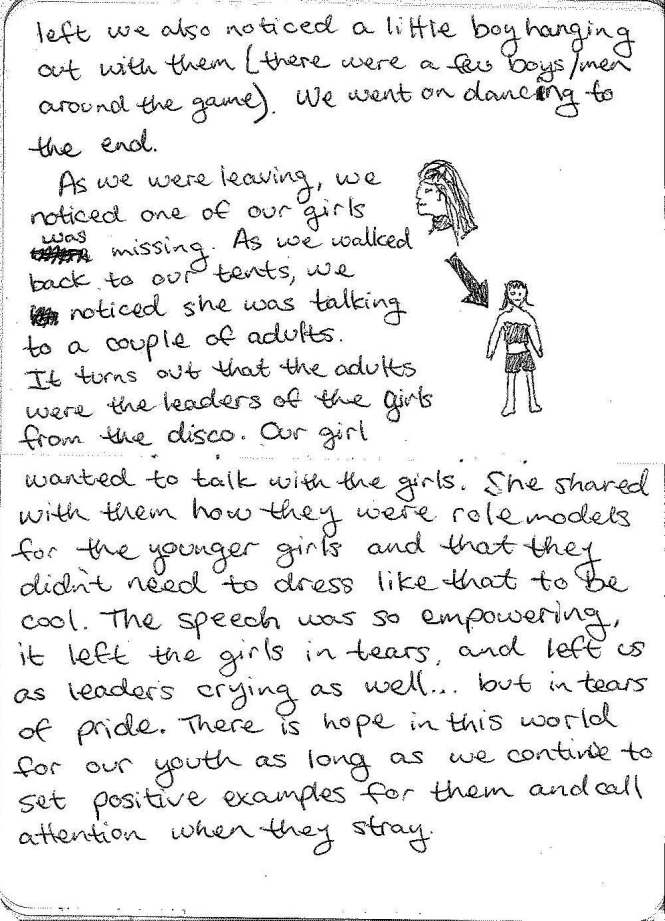 left we also noticed a little boy hanging
out with them (there were a few boys/men
around the game). We went on dancing to
the end.
As we were leaving, we
noticed one of our girls
was missing. As we walked
back to our tents, we
noticed she was talking
to a couple of adults.
It turns out that the adults
were the leaders of the girls
from the disco. Our girl
wanted to talk with the girls. She shared
with them how they were role models
for the younger girls and that they
didn't need to dress like that to be
cool. The speech was so empowering,
it left the girls in tears, and left us
as leaders crying as well... but in tears
of pride. There is hope in this world
for our youth as long as we continue to
set positive examples for them and call
attention when they stray.